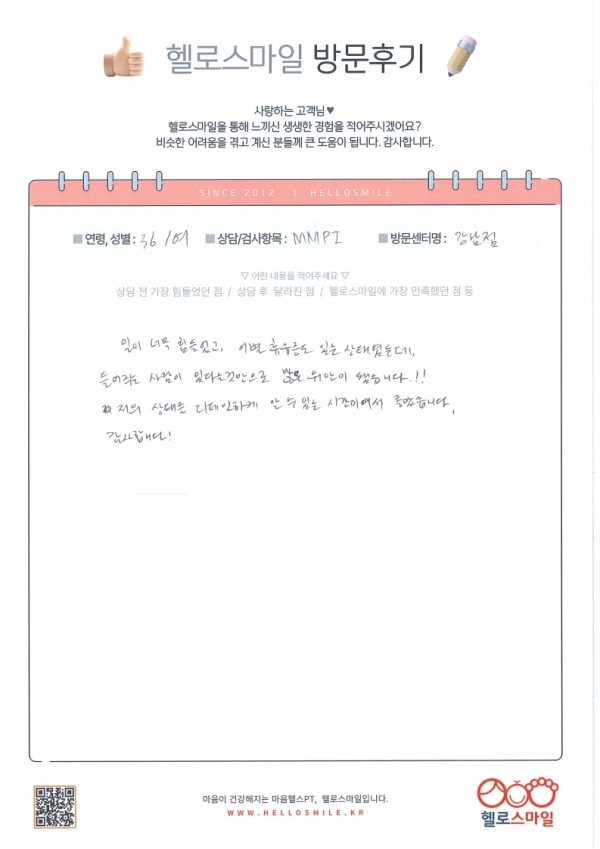 헬로스마일 방문후기
사랑하는 고객님♥
헬로스마일을 통해 느끼신 생생한 경험을 적어주시겠어요?
비슷한 어려움을 겪고 계신 분들께 큰 도움이 됩니다. 감사합니다.
SINCE 2012 I HELLOSMILE
■ 연령, 성별 : 36 /여 ■ 상담/검사항목 : MMPI ■ 방문센터명 : 강남점
▽ 이런 내용을 적어주세요 ▽
상담 전 가장 힘들었던 점 / 상담 후 달라진 점 / 헬로스마일에 가장 만족했던 점 등
일이 너무 힘들었고, 이별 휴유증도 있는 상태였는데,
들어주는 사람이 있다는것만으로 위안이 됐습니다.!!
저의 상태를 디테일하게 알 수 있는 시간이여서 좋았습니다,
감사합니다!
마음이 건강해지는 마음헬스PT, 헬로스마일입니다.
WWW.HELLOSMILE.KR
헬로스마일